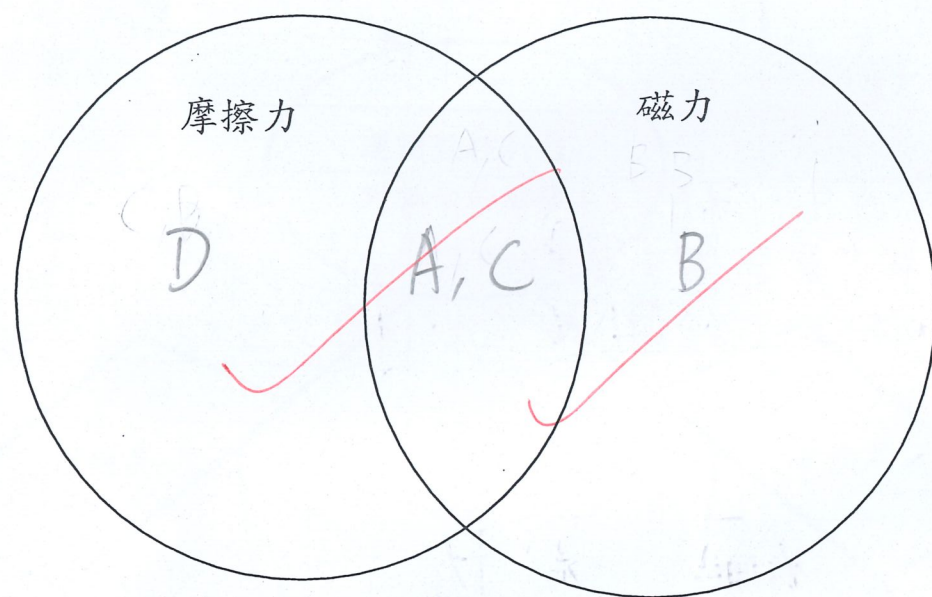 摩擦力
磁力
D
A, C
B